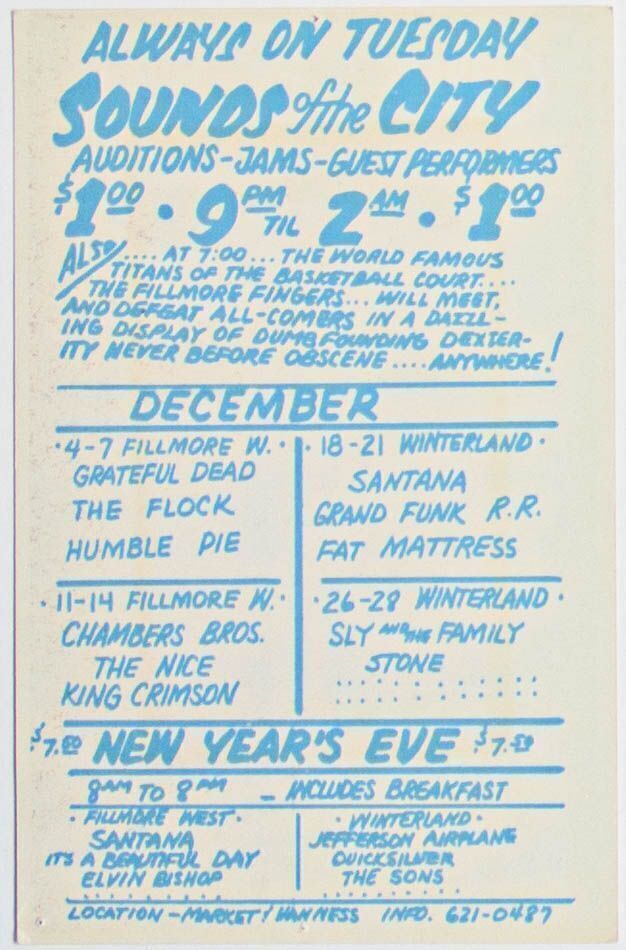 ALWAYS ON TUESDAY
SOUNDS of the CITY
AUDITIONS-JAMS-GUEST PERFORMERS
$1.00 • 9 PM TIL 2 AM • $1.00
ALSO .... AT 7:00 ... THE WORLD FAMOUS
TITANS OF THE BASKETBALL COURT....
THE FILLMORE FINGERS... WILL MEET,
AND DEFEAT ALL-COMERS IN A DAZZL-
ING DISPLAY OF DUMBFOUNDING DEXTER-
ITY NEVER BEFORE OBSCENE .... ANYWHERE!
DECEMBER
• 4-7 FILLMORE W. •
GRATEFUL DEAD
THE FLOCK
HUMBLE PIE
• 18-21 WINTERLAND •
SANTANA
GRAND FUNK R.R.
FAT MATTRESS
• 11-14 FILLMORE W. •
CHAMBERS BROS.
THE NICE
KING CRIMSON
• 26-28 WINTERLAND •
SLY AND THE FAMILY
STONE
$7.50 NEW YEAR'S EVE $7.50
8 AM TO 8 PM - INCLUDES BREAKFAST
• FILLMORE WEST •
SANTANA
IT'S A BEAUTIFUL DAY
ELVIN BISHOP
• WINTERLAND •
JEFFERSON AIRPLANE
QUICKSILVER
THE SONS
LOCATION - MARKET & VAN NESS INFO. 621-0487